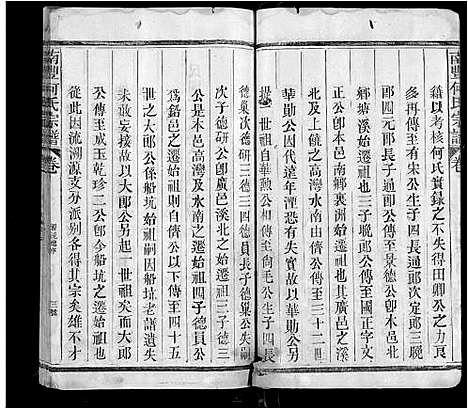 南豐何氏宗譜 卷
藉以考核何氏實錄之不失得田卿公之力
而再傳至有宋公生子四長通郎次定郎三晚
郎四元郎長子通郎公傳至景德公卽本邑北
鄉塘溪始遷祖也三子晚郎公傳至國正文
正公卽本邑南鄉裏洲始遷祖也其廣邑之溪
北上伎之高灣水南由儕公以下傳至三十二世
華勛公因代遠年湮恐有失實故以華勛公
提一世祖自華勛公至尙毛公生子四長
德巢次德研三德三四德員長子德巢公失嗣
次子德研公創廣邑溪北之始遷祖三子德三
公本邑高灣及水南之遷始祖四子德員公
爲鉛邑之遷始祖則自儕公以下傳至四十五
世之大郎公係船坑始祖嗣因船坑老譜遺失
未敢妄接故以大郎公另起一世祖矣而大郎
公傳至成玉乾珍二公至今船坑之盛
從此因流溯源支分派别各得其宗矣雄不才
南豐何氏宗譜 卷
三